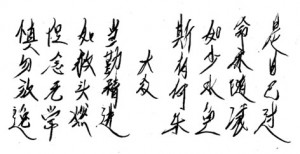 是日已过
命亦随减
如少水鱼
斯有何乐
大众
当勤精进
如救头燃
但念无常
慎勿放逸